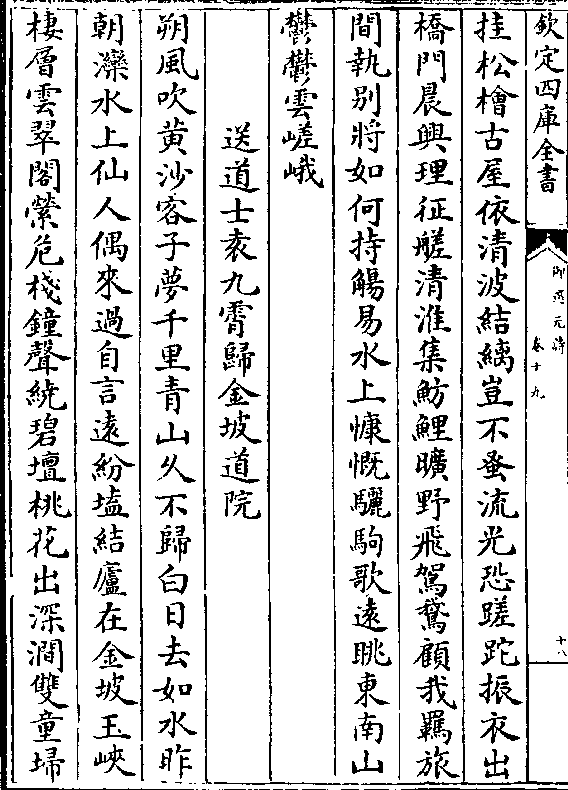 欽定四庫全書
御選元詩
卷十九
十八
挂松檜古屋依清波結縭豈不蚤流光恐蹉跎振衣出
橋門晨興理征艖清淮集魴鯉曠野飛駕鵞顧我羈旅
間執别將如何持觴易水上慷慨驪駒歌遠眺東南山
鬱鬱雲嵯峨
送道士袁九霄歸金坡道院
朔風吹黄沙客子夢千里青山久不歸白日去如水昨
朝灤水上仙人偶來過自言遠紛壒結廬在金坡玉峽
棲層雲翠閣縈危棧鐘聲繞碧壇桃花出深澗雙童埽